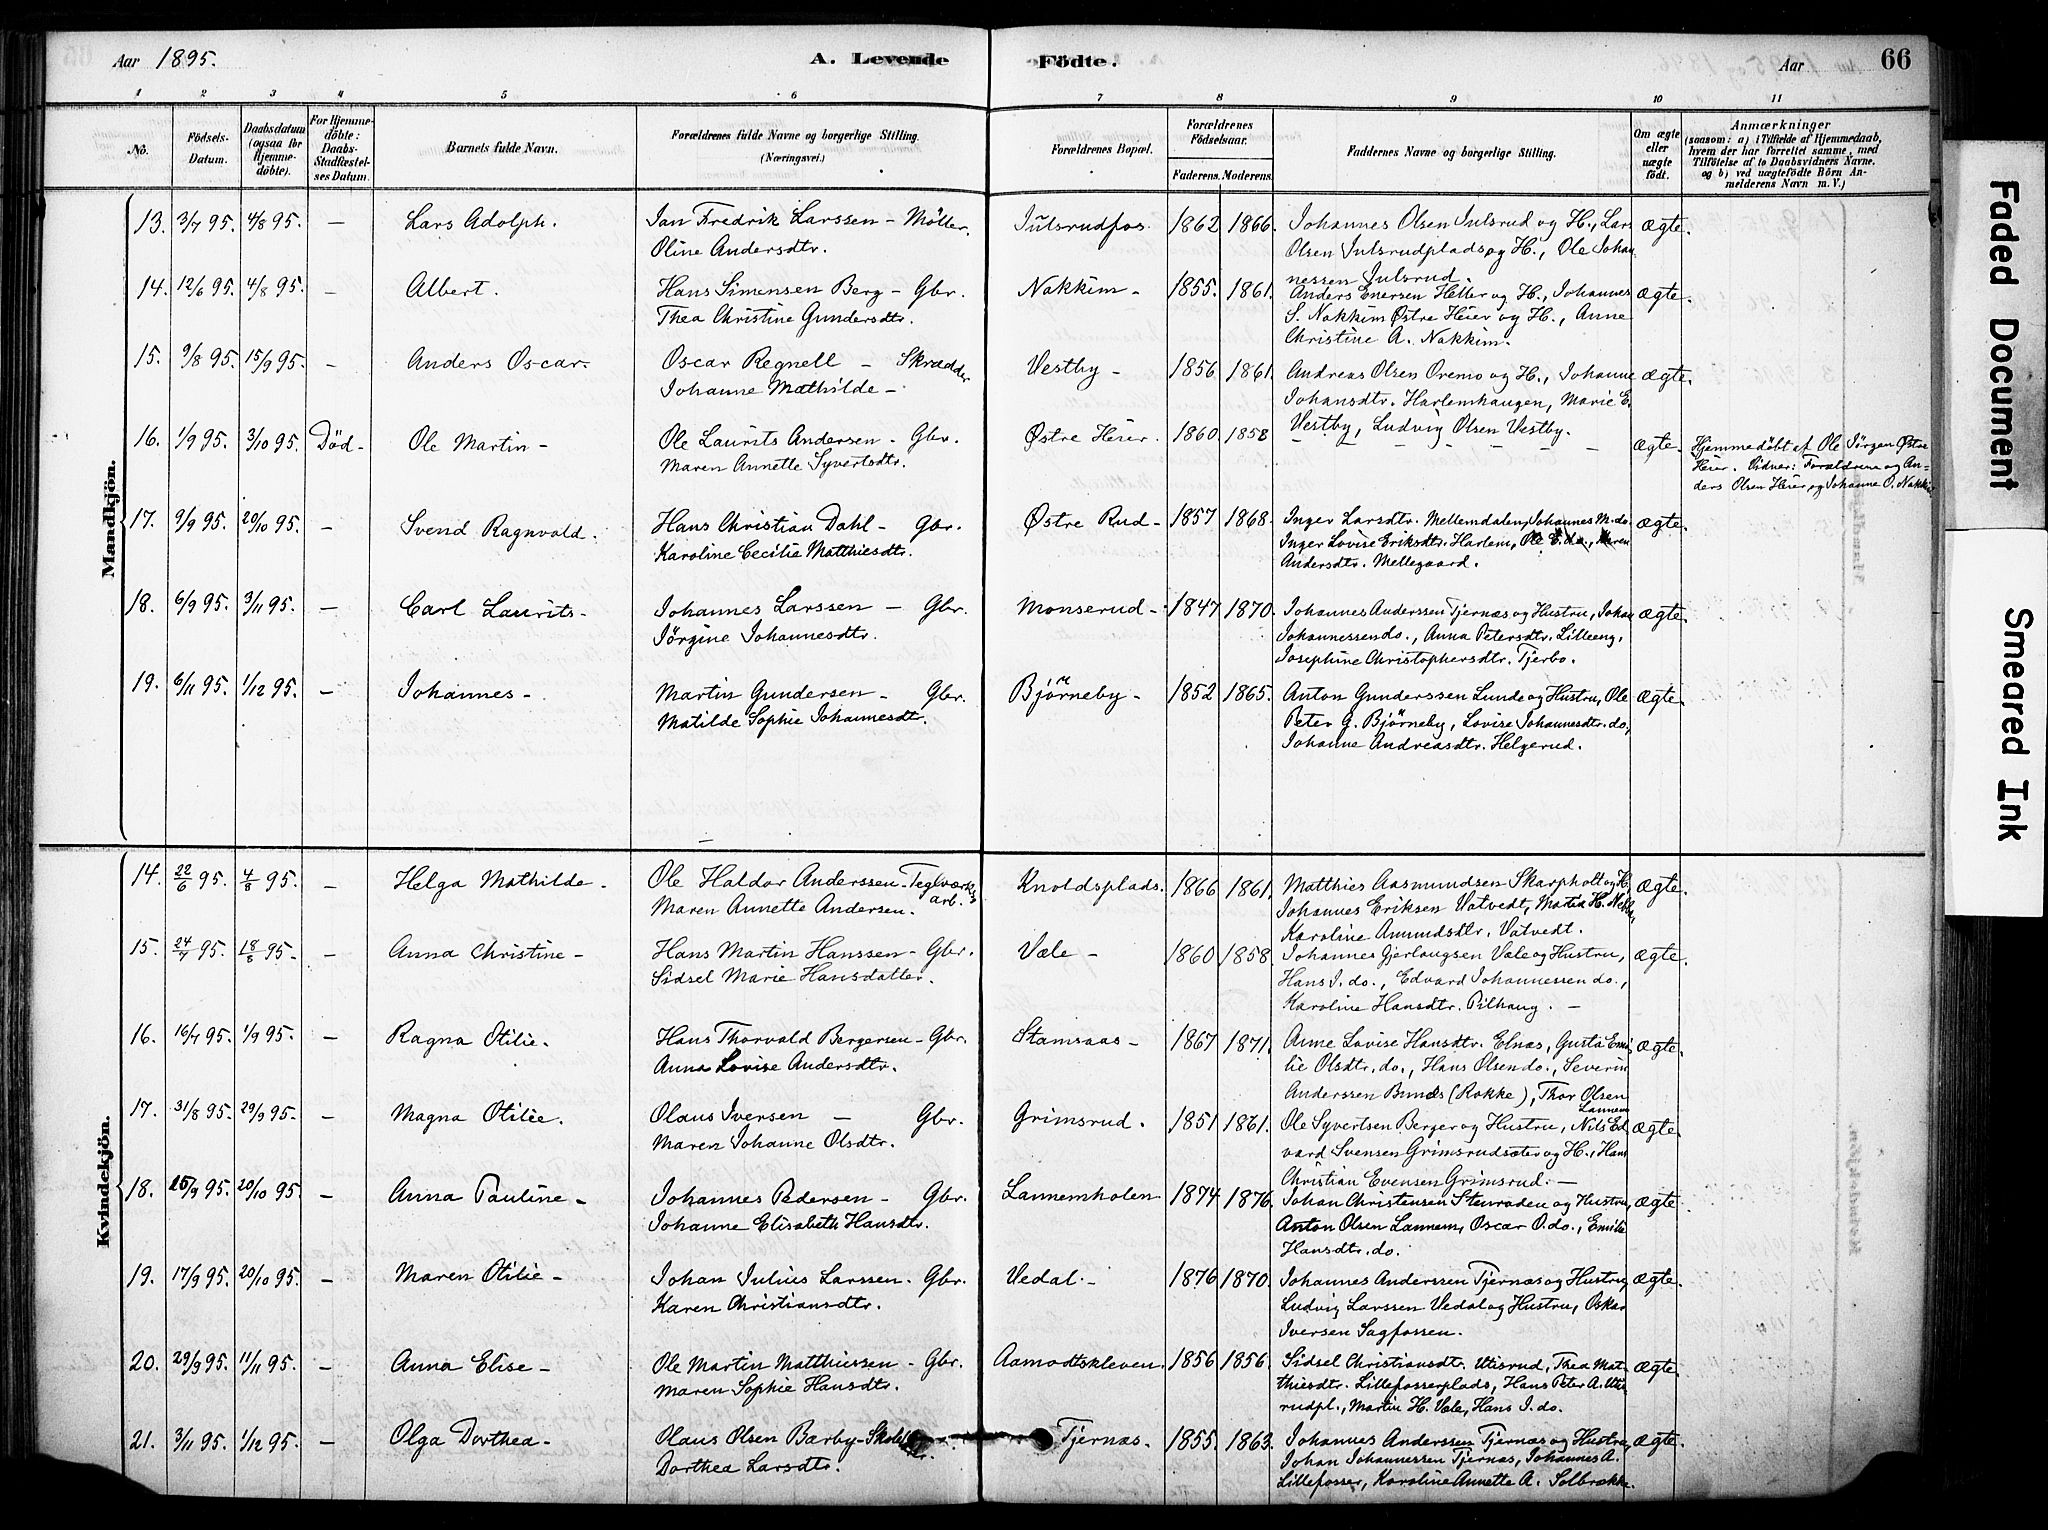 Aar 1895. A. Levende Födte. Aar 66
1 2 3 4 5 6 7 8 9 10 11
No. Födsels-Datum. Daabsdatum (ogsaa for Hjemmedöbte). For Hjemmedöbte: Daabs-Stadfæstelses Datum. Barnets fulde Navn. Forældrenes fulde Navne og borgerlige Stilling. (Næringsvei.) Forældrenes Bopæl. Forældrenes Födselsaar. Faderens. Moderens. Faddernes Navne og borgerlige Stilling. Om ægte eller uægte födt. Anmærkninger (saasom: a) i Tilfælde af Hjemmedaab, hvem der har forrettet samme, med Tilföielse af to Daabsvidners Navne. og b) ved uægtefödte Börn Anmelderens Navn m. V.)
Mandkjön.
13. 3/7 95. 4/8 95. — Lars Adolph. Jan Fredrik Larssen - Möller. Julsrudfos. 1862 1866. Johannes Olsen Julsrud og H., Lars ægte.
Oline Andersdtr. Olsen Julsrudplads og H., Ole Johan
nessen Julsrud.
14. 12/6 95. 4/8 95. — Albert. Hans Simensen Berg - Gbr. Nakkim - 1855. 1861. Anders Enersen Heller og H., Johannes ægte.
Thea Christine Gundersdtr. S. Nakkim Østre Heier og H., Anne
Christine A. Nakkim.
15. 9/8 95. 15/9 95. — Anders Oscar - Oscar Regnell - Skrædder Vestby - 1856 1861. Andreas Olsen Oremo og H., Johanne ægte.
Johanne Mathilde - Johansdtr. Harlemhaugen, Marie E.
Vestby, Ludvig Olsen Vestby.
16. 1/9 95. 3/10 95. Död - Ole Martin - Ole Laurits Andersen - Gbr. Østre Heier. 1860. 1858 — — — — — ægte. Hjemmedöbt af Ole Jörgen Østre
Maren Annette Syvertsdtr. Heier. Vidner: Forældrene og An-
ders Olsen Heier og Johanne O. Nakkim
17. 9/9 95. 20/10 95. — Svend Ragnvald. Hans Christian Dahl - Gbr. Østre Rud - 1857 1868. Inger Larsdtr. Mellemdalen, Johannes M. do. ægte.
Karoline Cecilie Matthiesdtr. Inger Lovise Eriksdtr. Harlem, Ole E. do., Maren
Andersdtr. Mellegaard.
18. 6/9 95. 3/11 95. — Carl Laurits - Johannes Larssen - Gbr. Monserud - 1847 1870. Johannes Anderssen Tjernæs og Hustru, Johan ægte.
Jörgine Johannesdtr. Johannessen do., Anna Petersdtr. Lilleeng,
Josephine Christophersdtr. Tjerbo.
19. 6/11 95. 1/12 95. — Johannes - Martin Gundersen - Gbr. Björneby - 1852 1865. Anton Gunderssen Lunde og Hustru, Ole ægte.
Matilde Sophie Johannesdtr. Peter G. Björneby, Lovise Johannesdtr. do,
Johanne Andreasdtr. Helgerud.
Kvindekjön.
14. 22/6 95. 4/8 95. — Helga Mathilde. Ole Haldor Anderssen - Teglværks arb. Knoldsplads. 1866 1861. Matthies Aasmundsen Skarpholt og H. ægte.
Maren Annette Andersen. Johannes Eriksen Vatvedt, Martea H.
Karoline Amundsdtr. Vatvedt.
15. 24/7 95. 18/8 95. — Anna Christine - Hans Martin Hanssen - Gbr. Væle - 1860 1858. Johannes Gjerlaugsen Væle og Hustru, ægte.
Sidsel Marie Hansdatter. Hans J. do., Edvard Johannessen do.,
Karoline Hansdtr. Pilhaug. —
16. 16/7 95. 1/9 95. — Ragna Otilie. Hans Thorvald Bergersen - Gbr. Stamsaas - 1867 1871. Anne Lovise Hansdtr. Elnæs, Gusta Emi ægte.
Anna Lovise Andersdtr. lie Olsdtr. do., Hans Olsen do., Severin
Anderssen Bunæs (Rokke), Thor Olsen
Lannem
17. 31/8 95. 29/9 95. — Magna Otilie. Olaus Iversen - Gbr. Grimsrud. 1851 1861. Ole Syvertsen Berger og Hustru, Nils Ed ægte.
Maren Johanne Olsdtr. vard Svensen Grimsrudsæter og H., Hans
Christian Evensen Grimsrud. —
18. 15/9 95. 20/10 95. — Anna Pauline - Johannes Pedersen - Gbr. Lannemholen 1874 1876. Johan Christensen Stenroden og Hustru, ægte.
Johanne Elisabeth Hansdtr. Anton Olsen Lannem, Oscar O. do., Emilie
Hansdtr. do.
19. 17/9 95. 20/10 95. — Maren Otilie - Johan Julius Larssen - Gbr. Vedal - 1876 1870. Johannes Anderssen Tjernæs og Hustru, ægte.
Karen Christiansdtr. Ludvig Larssen Vedal og Hustru, Oskar
Iversen Sagfossen.
20. 29/9 95. 11/11 95. — Anna Elise - Ole Martin Matthiessen - Gbr. Aamodtskleven 1856 1856. Sidsel Christiansdtr. Utisrud, Thea Mat- ægte.
Maren Sophie Hansdtr. thiesdtr. Lillefosserplads, Hans Peter A. Utis
rudpl., Martin H. Væle, Hans J. do.
21. 3/11 95. 1/12 95. — Olga Dorthea - Olaus Olsen Barby - Tjernæs - 1855. 1863. Johannes Anderssen Tjernæs og Hustru, ægte.
Dorthea Larsdtr. Johan Johannessen Tjernæs, Johannes A.
Lillefosser, Karoline Annette A. Solbrække.
Faded Document
Smeared Ink